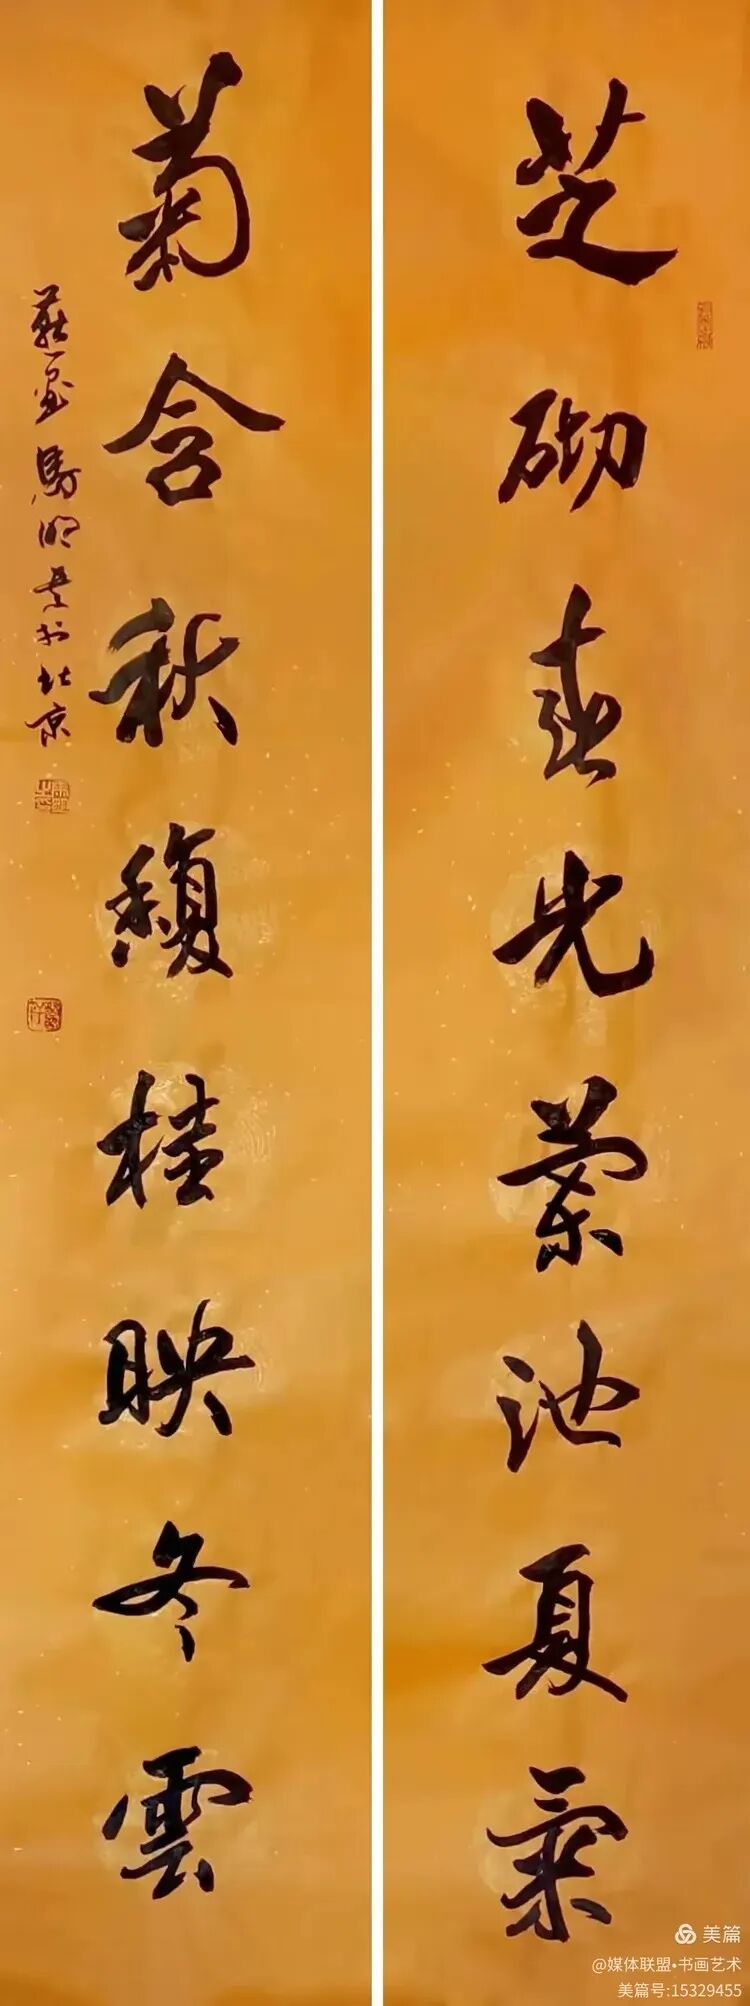 芝砌春光蘭池夏氣
菊含秋馥桂映冬雲
馬明書於北京
美篇
@媒体联盟•书画艺术
美篇号:15329455